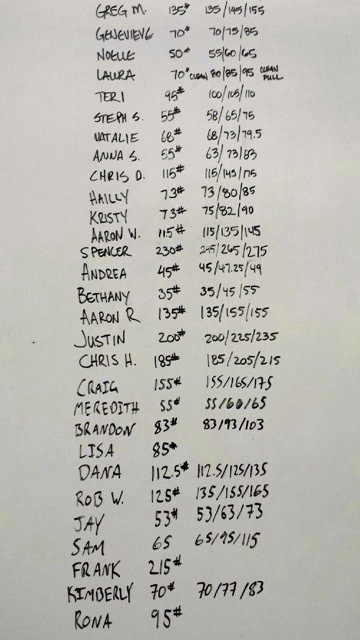 GREG M. 135# 135/145/155
GENEVIEVE 70# 70/75/85
NOELLE 50# 55/60/65
LAURA 70# CLEAN 80/85/95 CLEAN PULL
TERI 95# 100/105/110
STEPH S. 55# 58/65/75
NATALIE 68# 68/73/79.5
ANNA S. 55# 63/73/83
CHRIS D. 115# 115/145/175
HAILLY 73# 73/80/85
KRISTY 73# 75/82/90
AARON W. 115# 115/135/145
SPENCER 230# 245/265/275
ANDREA 45# 45/47.25/49
BETHANY 35# 35/45/55
AARON R 135# 135/155/155
JUSTIN 200# 200/225/235
CHRIS H. 185# 185/205/215
CRAIG 155# 155/165/175
MEREDITH 55# 55/60/65
BRANDON 83# 83/93/103
LISA 85#
DANA 112.5# 112.5/125/135
ROB W. 125# 135/155/165
JAY 53# 53/63/73
SAM 65 65/95/115
FRANK 215#
KIMBERLY 70# 70/77/83
RONA 95#